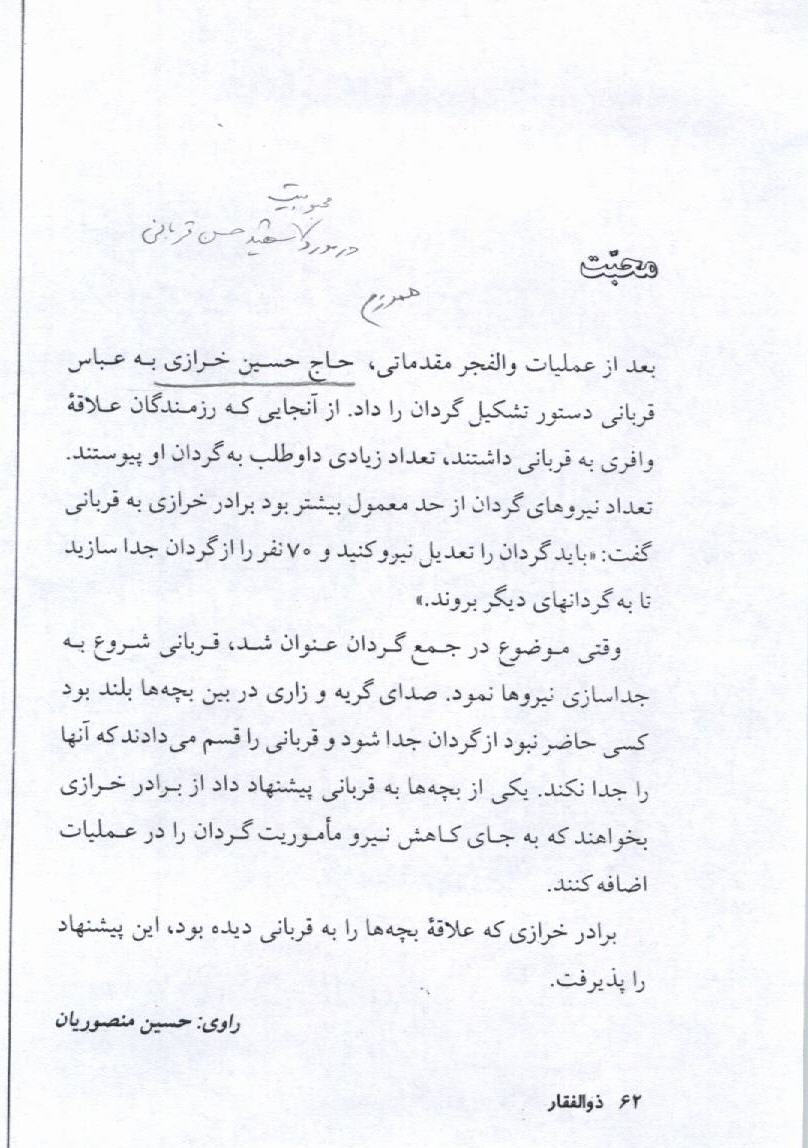 محبوبیت
در مورد شهید حسن قربانی
محبّت
همرزم
بعد از عملیات والفجر مقدماتی، حاج حسین خرازی به عباس
قربانی دستور تشکیل گردان را داد. از آنجایی که رزمندگان علاقهٔ
وافری به قربانی داشتند، تعداد زیادی داوطلب به گردان او پیوستند.
تعداد نیروهای گردان از حد معمول بیشتر بود برادر خرازی به قربانی
گفت: «باید گردان را تعدیل نیرو کنید و ۷۰ نفر را از گردان جدا سازید
تا به گردانهای دیگر بروند.»
وقتی موضوع در جمع گردان عنوان شد، قربانی شروع به
جداسازی نیروها نمود. صدای گریه و زاری در بین بچه‌ها بلند بود
کسی حاضر نبود از گردان جدا شود و قربانی را قسم می‌دادند که آنها
را جدا نکند. یکی از بچه‌ها به قربانی پیشنهاد داد از برادر خرازی
بخواهند که به جای کاهش نیرو مأموریت گردان را در عملیات
اضافه کنند.
برادر خرازی که علاقهٔ بچه‌ها را به قربانی دیده بود، این پیشنهاد
را پذیرفت.
راوی: حسین منصوریان
۶۲ ذوالفقار